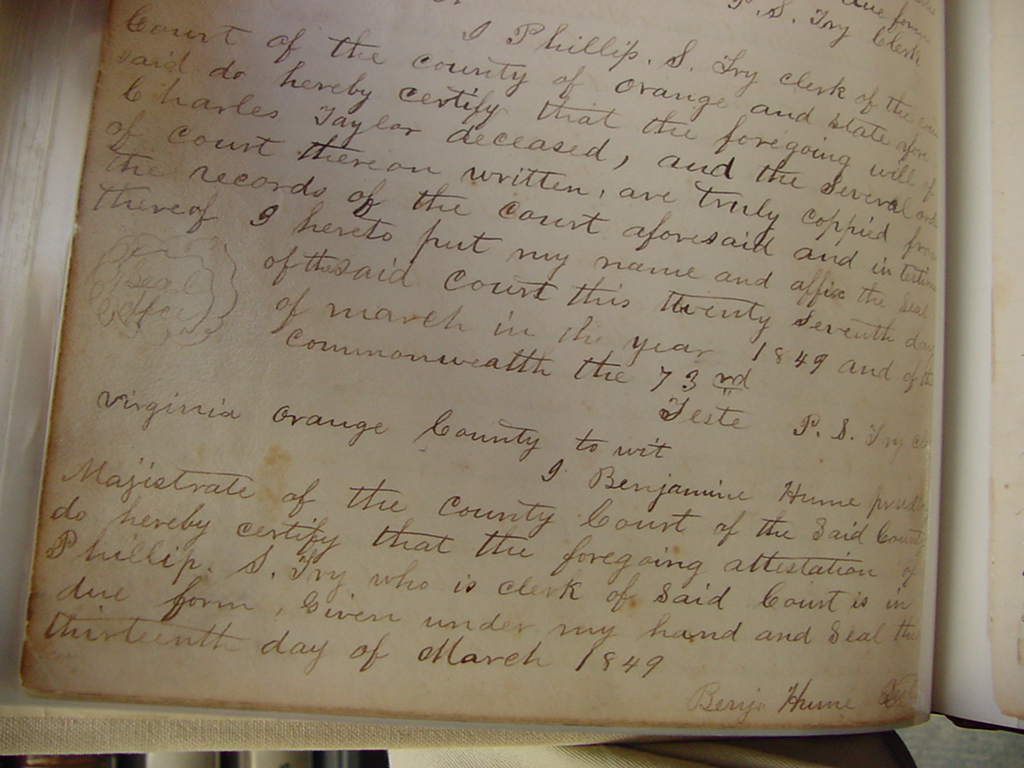 due form
P. S. Fry Clerk
I Phillip. S. Fry clerk of the
Court of the county of orange and state afore
said do hereby certify that the foregoing will of
Charles Taylor deceased, and the Several
of court thereon written, are truly coppied from
the records of the court aforesaid and in
thereof I hereto put my name and affix the Seal
Seal
office
of the said Court this twenty Seventh day
of march in the year 1849 and of the
Commonwealth the 73rd
Teste P. S. Fry
virginia orange County to wit
I Benjamine Hume
Majistrate of the County Court of the Said County
do hereby certify that the foregoing attestation of
Phillip. S. Fry who is clerk of Said Court is in
due form, Given under my hand and Seal this
thirteenth day of March 1849
Benja Hume Seal